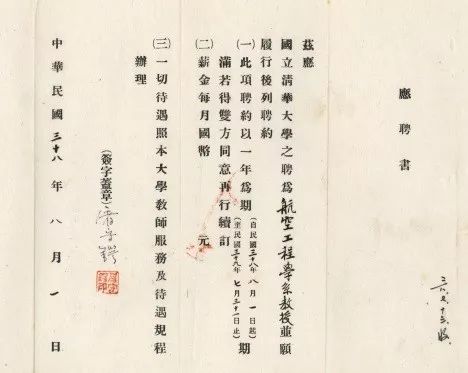 應聘書
茲應
國立清華大學之聘爲航空工程學系教授並願
履行後列聘約
(一)此項聘約以一年爲期(自民國三十八年八月一日起
至民國三十九年七月三十一日止)期
滿若得雙方同意再行續訂
(二)薪金每月國幣 元
(三)一切待遇照本大學教師服務及待遇規程
辦理
(簽字蓋章)屠守鍔
中華民國三十八年八月一日